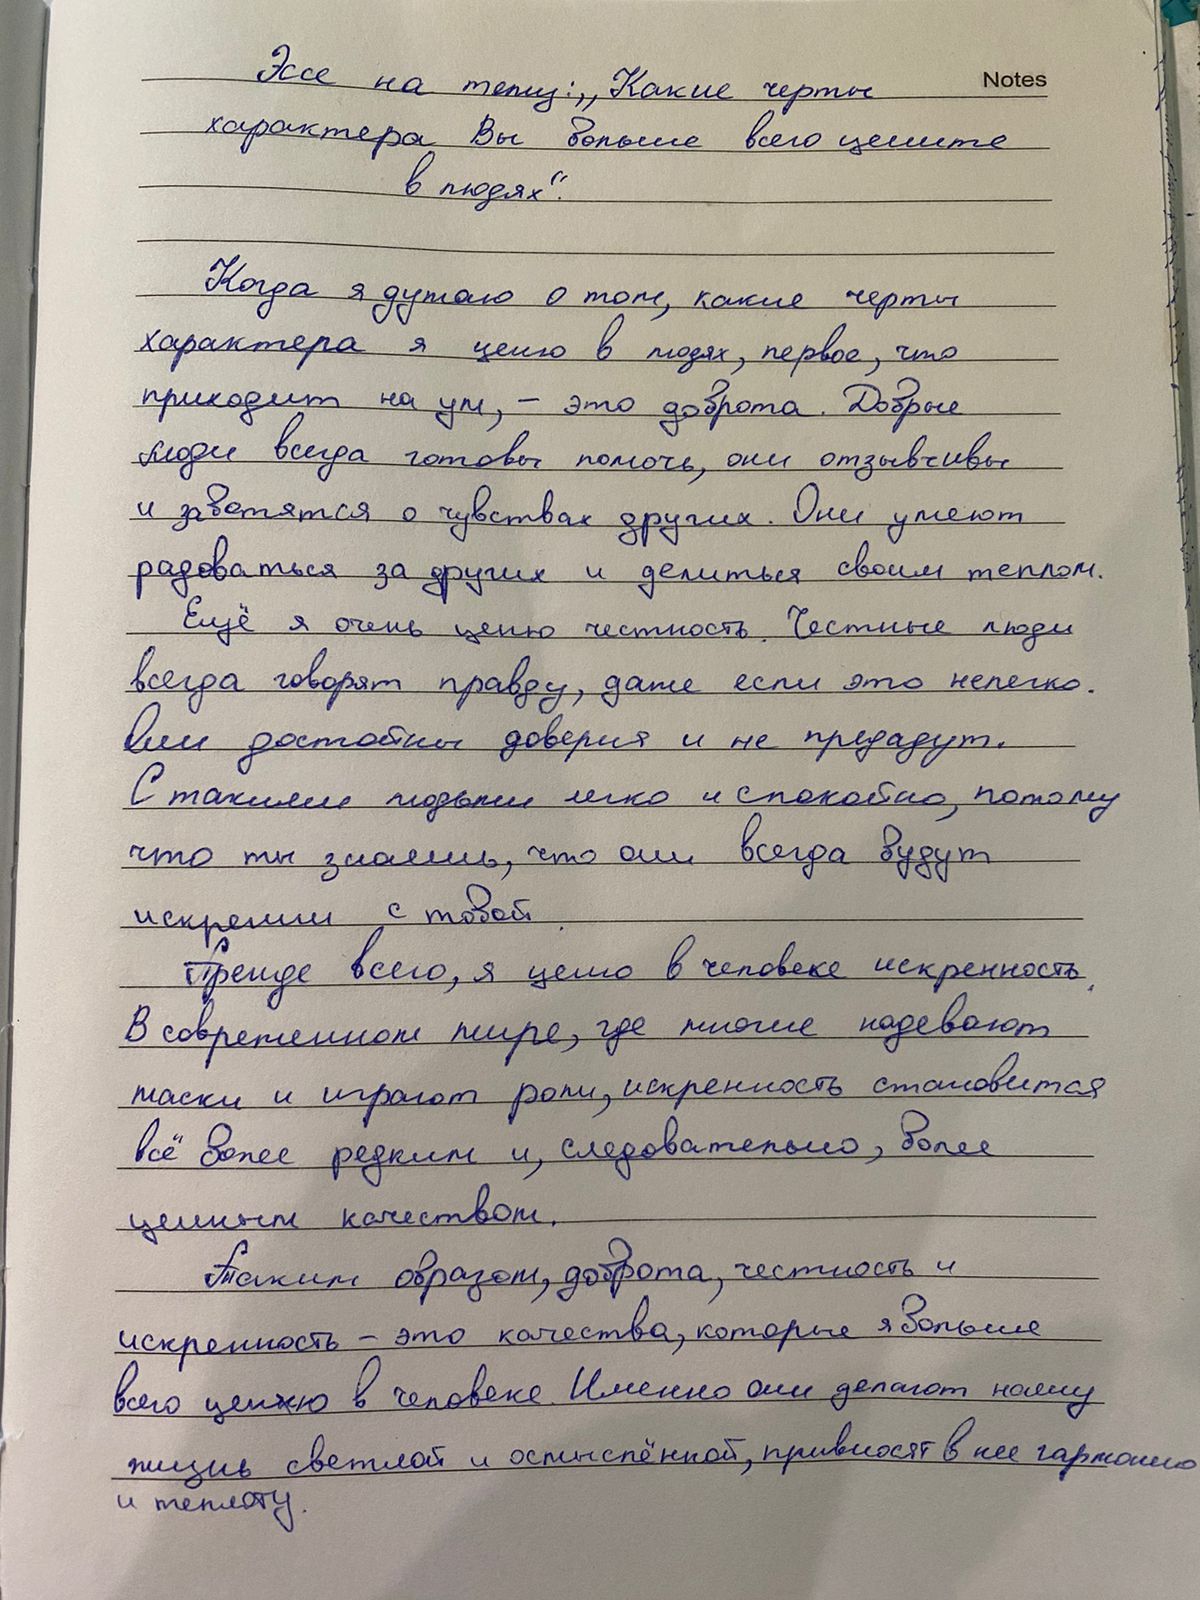 Notes
Эссе на тему: „Какие черты
характера Вы больше всего цените
в людях“.
Когда я думаю о том, какие черты
характера я ценю в людях, первое, что
приходит на ум, – это доброта. Добрые
люди всегда готовы помочь, они отзывчивы
и заботятся о чувствах других. Они умеют
радоваться за других и делиться своим теплом.
Ещё я очень ценю честность. Честные люди
всегда говорят правду, даже если это нелегко.
Они достойны доверия и не предадут.
С такими людьми легко и спокойно, потому
что ты знаешь, что они всегда будут
искренни с тобой.
Прежде всего, я ценю в человеке искренность.
В современном мире, где многие надевают
маски и играют роли, искренность становится
всё более редким и, следовательно, более
ценным качеством.
Таким образом, доброта, честность и
искренность – это качества, которые я больше
всего ценю в человеке. Именно они делают нашу
жизнь светлой и осмыслённой, привносят в нее гармонию
и теплоту.